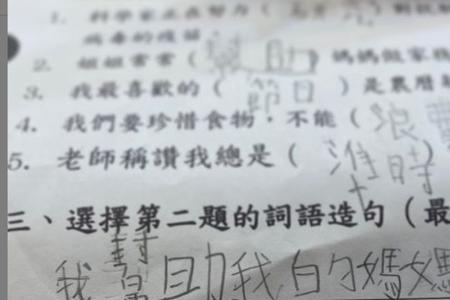 1. 科學家正在努力（
病毒的疫苗。
2. 姐姐常常（幫助）媽媽做家
3. 我最喜歡的（節日）是農曆
4. 我們要珍惜食物，不能（浪費
5. 老師稱讚我總是（準時）
三、選擇第二題的詞語造句（最
我幫助我的媽媽